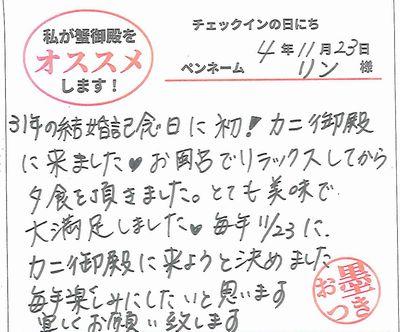 私が蟹御殿を
オススメ
します!
チェックインの日にち
4年11月23日
ペンネーム リン 様
31年の結婚記念日に初!カニ御殿
に来ました♥お風呂でリラックスしてから
夕食を頂きました。とても美味で
大満足しました♥毎年11/23に
カニ御殿に来ようと決めました
毎年楽しみにしたいと思います
宜しくお願い致します
お墨つき